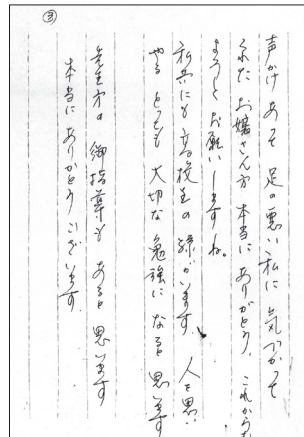 ③
声かけあって 足の悪い私に 気づかって
くれた お嬢さん方 本当に ありがとう。これからも
よろしく お願いしますね。
私共にも 高校生の 孫がいます。人を思い
やる とても 大切な 勉強に なると 思います
先生方の 御指導も あると 思います
本当に ありがとうございます。